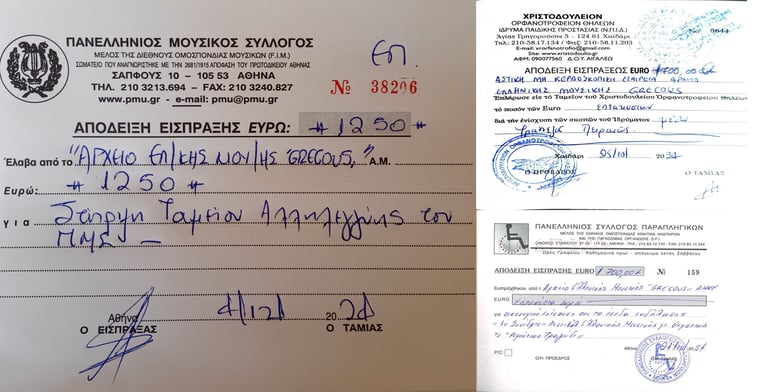 ΠΑΝΕΛΛΗΝΙΟΣ ΜΟΥΣΙΚΟΣ ΣΥΛΛΟΓΟΣ
ΜΕΛΟΣ ΤΗΣ ΔΙΕΘΝΟΥΣ ΟΜΟΣΠΟΝΔΙΑΣ ΜΟΥΣΙΚΩΝ (F.I.M.)
ΣΩΜΑΤΕΙΟ ΠΟΥ ΑΝΑΓΝΩΡΙΣΘΗΚΕ ΜΕ ΤΗΝ 2681/1915 ΑΠΟΦΑΣΗ ΤΟΥ ΠΡΩΤΟΔΙΚΕΙΟΥ ΑΘΗΝΩΝ
ΣΑΠΦΟΥΣ 10 – 105 53 ΑΘΗΝΑ
ΤΗΛ. 210 3213.694 – FAX: 210 3240.827
www.pmu.gr - e-mail: pmu@pmu.gr
№ 38206
ΑΠΟΔΕΙΞΗ ΕΙΣΠΡΑΞΗΣ ΕΥΡΩ: # 1250 #
Έλαβα από το "ΑΡΧΕΙΟ ΕΛ/ΚΗΣ ΜΟΥ/ΗΣ GRECOUS," Α.Μ.
Ευρώ: # 1250 #
για Στήριξη Ταμείου Αλληλεγγύης του
ΠΜΣ —
Αθήνα 4/12/ 2024
Ο ΕΙΣΠΡΑΞΑΣ Ο ΤΑΜΙΑΣ
ΧΡΙΣΤΟΔΟΥΛΕΙΟΝ
ΟΡΦΑΝΟΤΡΟΦΕΙΟ ΘΗΛΕΩΝ
ΙΔΡΥΜΑ ΠΑΙΔΙΚΗΣ ΠΡΟΣΤΑΣΙΑΣ (Ν.Π.Ι.Δ.)
Αγίας Τριάδος 5 - 124 61 Χαϊδάρι
Τηλ: 210-58.17.134 / Fax: 210-58.11.203
ΑΦΜ: 090077560 Δ.Ο.Υ. ΑΙΓΑΛΕΩ
No 0644
ΑΠΟΔΕΙΞΗ ΕΙΣΠΡΑΞΕΩΣ EURO #700,00
ΑΣΤΙΚΗ ΜΗ ΚΕΡΔΟΣΚΟΠΙΚΗ ΕΤΑΙΡΕΙΑ ΑΡΧΕΙΟ
ΕΛΛΗΝΙΚΗΣ ΜΟΥΣΙΚΗΣ GRECOUS
Επλήρωσε εις το Ταμείον του Χριστοδουλείου Ορφανοτροφείου Θηλέων
το ποσόν των Euro Επτακοσίων
διά την ένίσχυση των σκοπών του Ιδρύματος μέσω
Τράπεζα Πειραιώς
Χαϊδάρι 25/10/ 2024
Ο ΠΡΟΕΔΡΟΣ Ο ΤΑΜΙΑΣ
ΠΑΝΕΛΛΗΝΙΟΣ ΣΥΛΛΟΓΟΣ ΠΑΡΑΠΛΗΓΙΚΩΝ
ΑΠΟΔΕΙΞΗ ΕΙΣΠΡΑΞΗΣ EURO # 700,00 # № 159
Εισπράχθηκαν από: Αρχείο Ελληνικής Μουσικής "GRECOUS"
EURO Επτακόσια ευρώ
Αθήνα
P/C Ο/Η ΠΡΟΕΔΡΟΣ